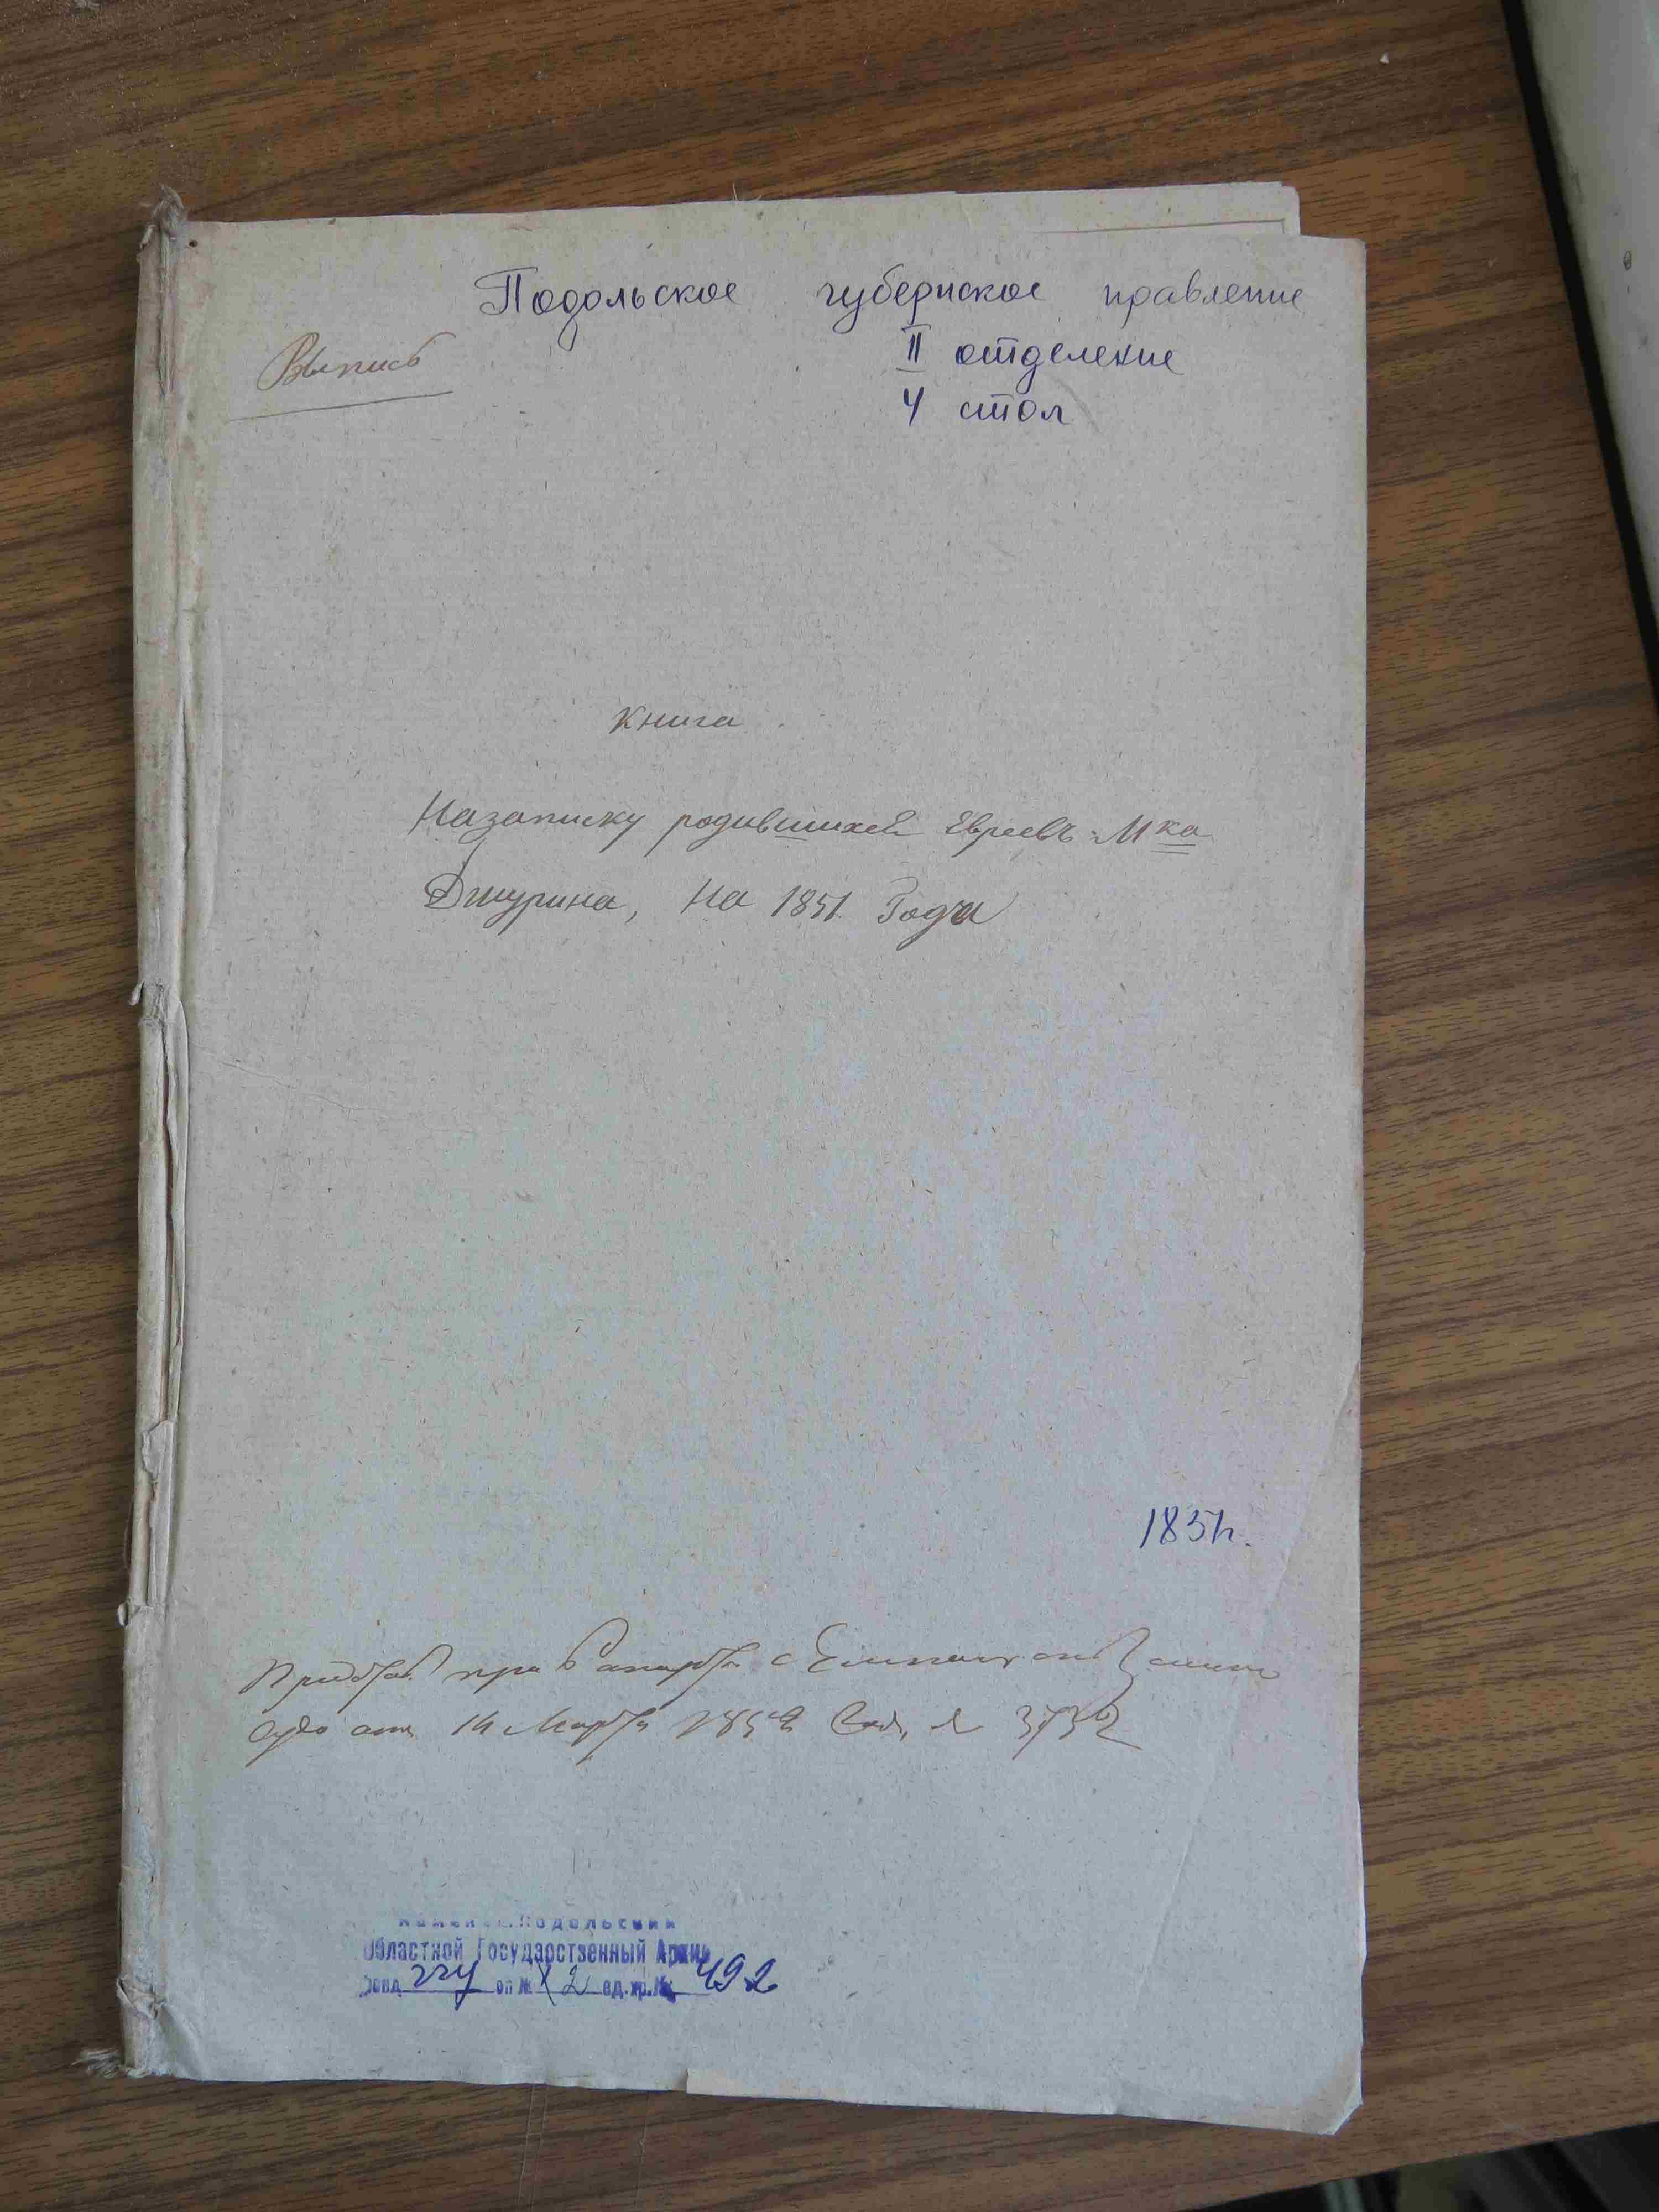 Подольское губернское правление
Выпись
II отделение
4 стол
Книга
На записку родившихся Евреевъ Мка
Джурина, на 1851 Годъ
1851г.
при с
суда отъ 14 Марта 1852 года № 3732
Каменец-Подольский
Областной Государственный Архив
фонд 224 оп № 2 ед. хр. № 492